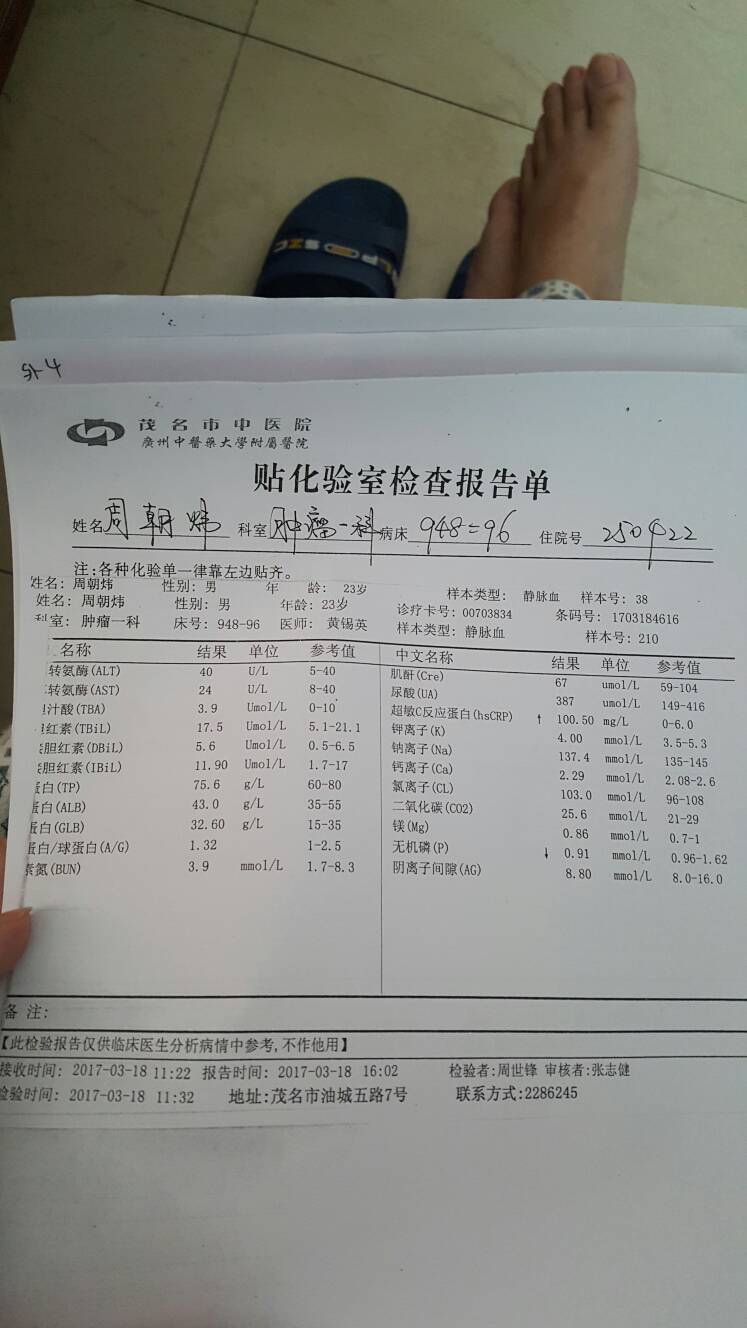 SZC
51-4
茂名市中医院
廣州中醫藥大學附屬醫院
贴化验室检查报告单
姓名 周朝炜 科室 肿瘤一科 病床 948=96 住院号 250422
注:各种化验单一律靠左边贴齐。
姓名: 周朝炜 性别: 男 年 龄: 23岁 样本类型: 静脉血 样本号: 38
姓名: 周朝炜 性别: 男 年龄: 23岁 诊疗卡号: 00703834 条码号: 1703184616
科室: 肿瘤一科 床号: 948-96 医师: 黄锡英 样本类型: 静脉血 样本号: 210
名称 结果 单位 参考值
转氨酶(ALT) 40 U/L 5-40
转氨酶(AST) 24 U/L 8-40
胆汁酸(TBA) 3.9 Umol/L 0-10
胆红素(TBiL) 17.5 Umol/L 5.1-21.1
胆红素(DBiL) 5.6 Umol/L 0.5-6.5
胆红素(IBiL) 11.90 Umol/L 1.7-17
蛋白(TP) 75.6 g/L 60-80
蛋白(ALB) 43.0 g/L 35-55
蛋白(GLB) 32.60 g/L 15-35
蛋白/球蛋白(A/G) 1.32 1-2.5
素氮(BUN) 3.9 mmol/L 1.7-8.3
中文名称 结果 单位 参考值
肌酐(Cre) 67 umol/L 59-104
尿酸(UA) 387 umol/L 149-416
超敏C反应蛋白(hsCRP) ↑ 100.50 mg/L 0-6.0
钾离子(K) 4.00 mmol/L 3.5-5.3
钠离子(Na) 137.4 mmol/L 135-145
钙离子(Ca) 2.29 mmol/L 2.08-2.6
氯离子(CL) 103.0 mmol/L 96-108
二氧化碳(CO2) 25.6 mmol/L 21-29
镁(Mg) 0.86 mmol/L 0.7-1
无机磷(P) ↓ 0.91 mmol/L 0.96-1.62
阴离子间隙(AG) 8.80 mmol/L 8.0-16.0
备 注:
【此检验报告仅供临床医生分析病情中参考,不作他用】
接收时间: 2017-03-18 11:22 报告时间: 2017-03-18 16:02 检验者:周世锋 审核者:张志健
检验时间: 2017-03-18 11:32 地址:茂名市油城五路7号 联系方式:2286245